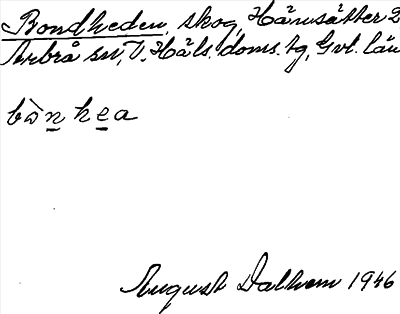 Bondheden, skog, Hänsätter 2
Arbrå sn, V. Häls. doms. tg, Gvl. län
bònhea
August Dalhem 1946